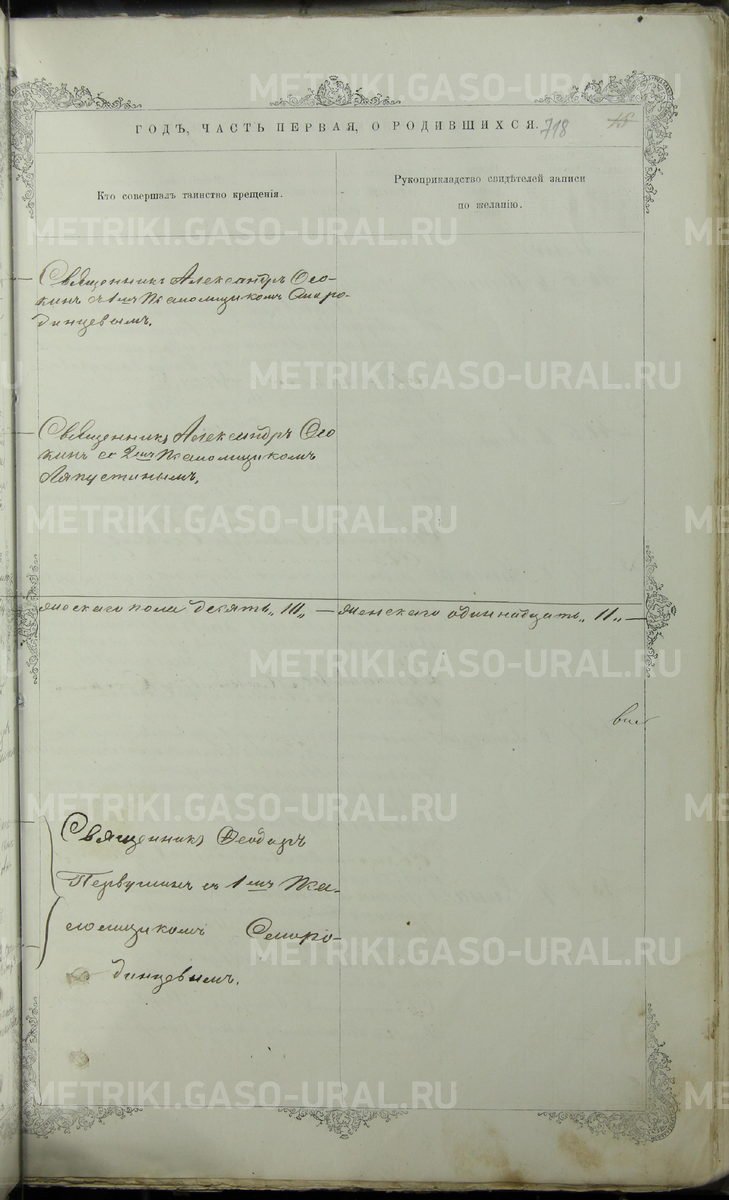 METRIKI.GASO-URAL.RU
ГОДЪ, ЧАСТЬ ПЕРВАЯ, О РОДИВШИХСЯ. 718
Кто совершалъ таинство крещенія.
Рукоприкладство свидѣтелей записи
по желанію.
Священникъ Александръ Осо-
кинъ съ 1мъ Псаломщикомъ Сморо-
динцевымъ.
Священникъ Александръ Осо
кинъ съ 2мъ Псаломщикомъ
Ляпустинымъ.
пола десять „ 10 „ — Женскаго одиннадцать „ 11 „ —
Священникъ Феодоръ
Первушинъ съ 1мъ Пса-
ломщикомъ Сморо-
динцевымъ.